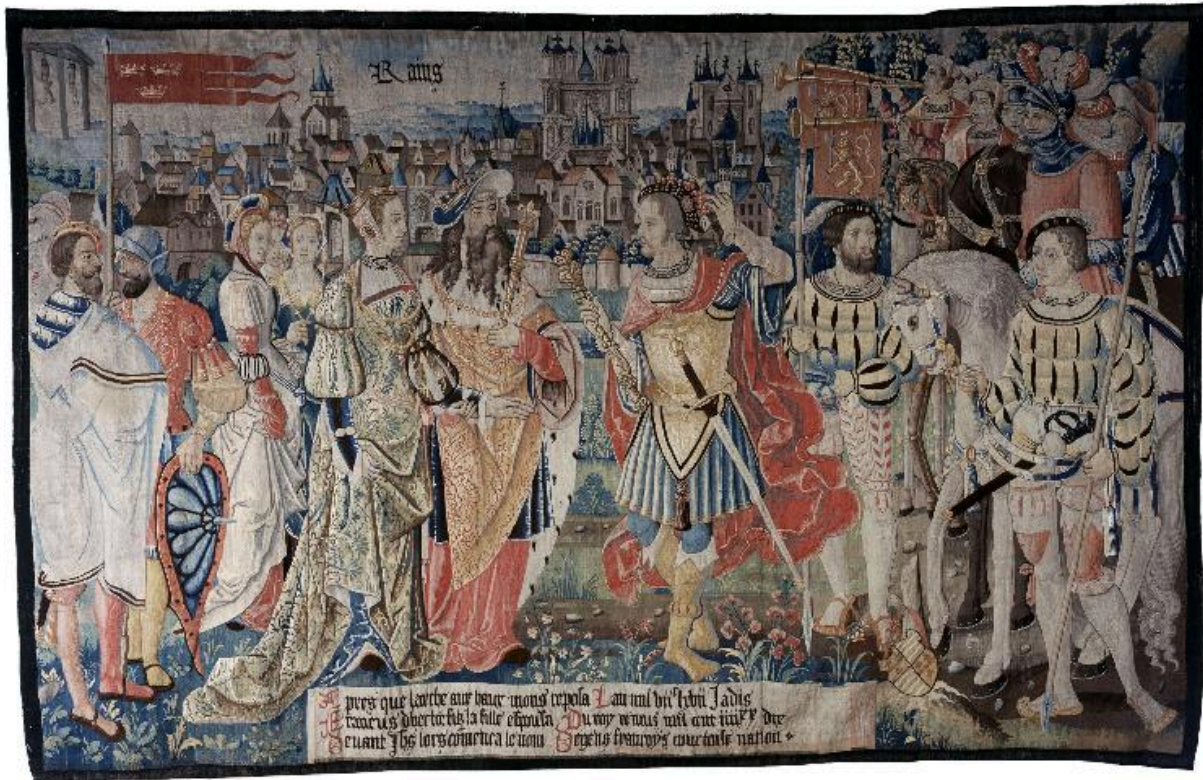 Rains
Apres que larche aux haux mons reposa Lan mil viic lxvii Jadis
Francus dhector filz la fille espousa Du roy remus mil cent iiiixx dix
Devant Jhs lors comenca le nom Des gens francoys courtoise nation